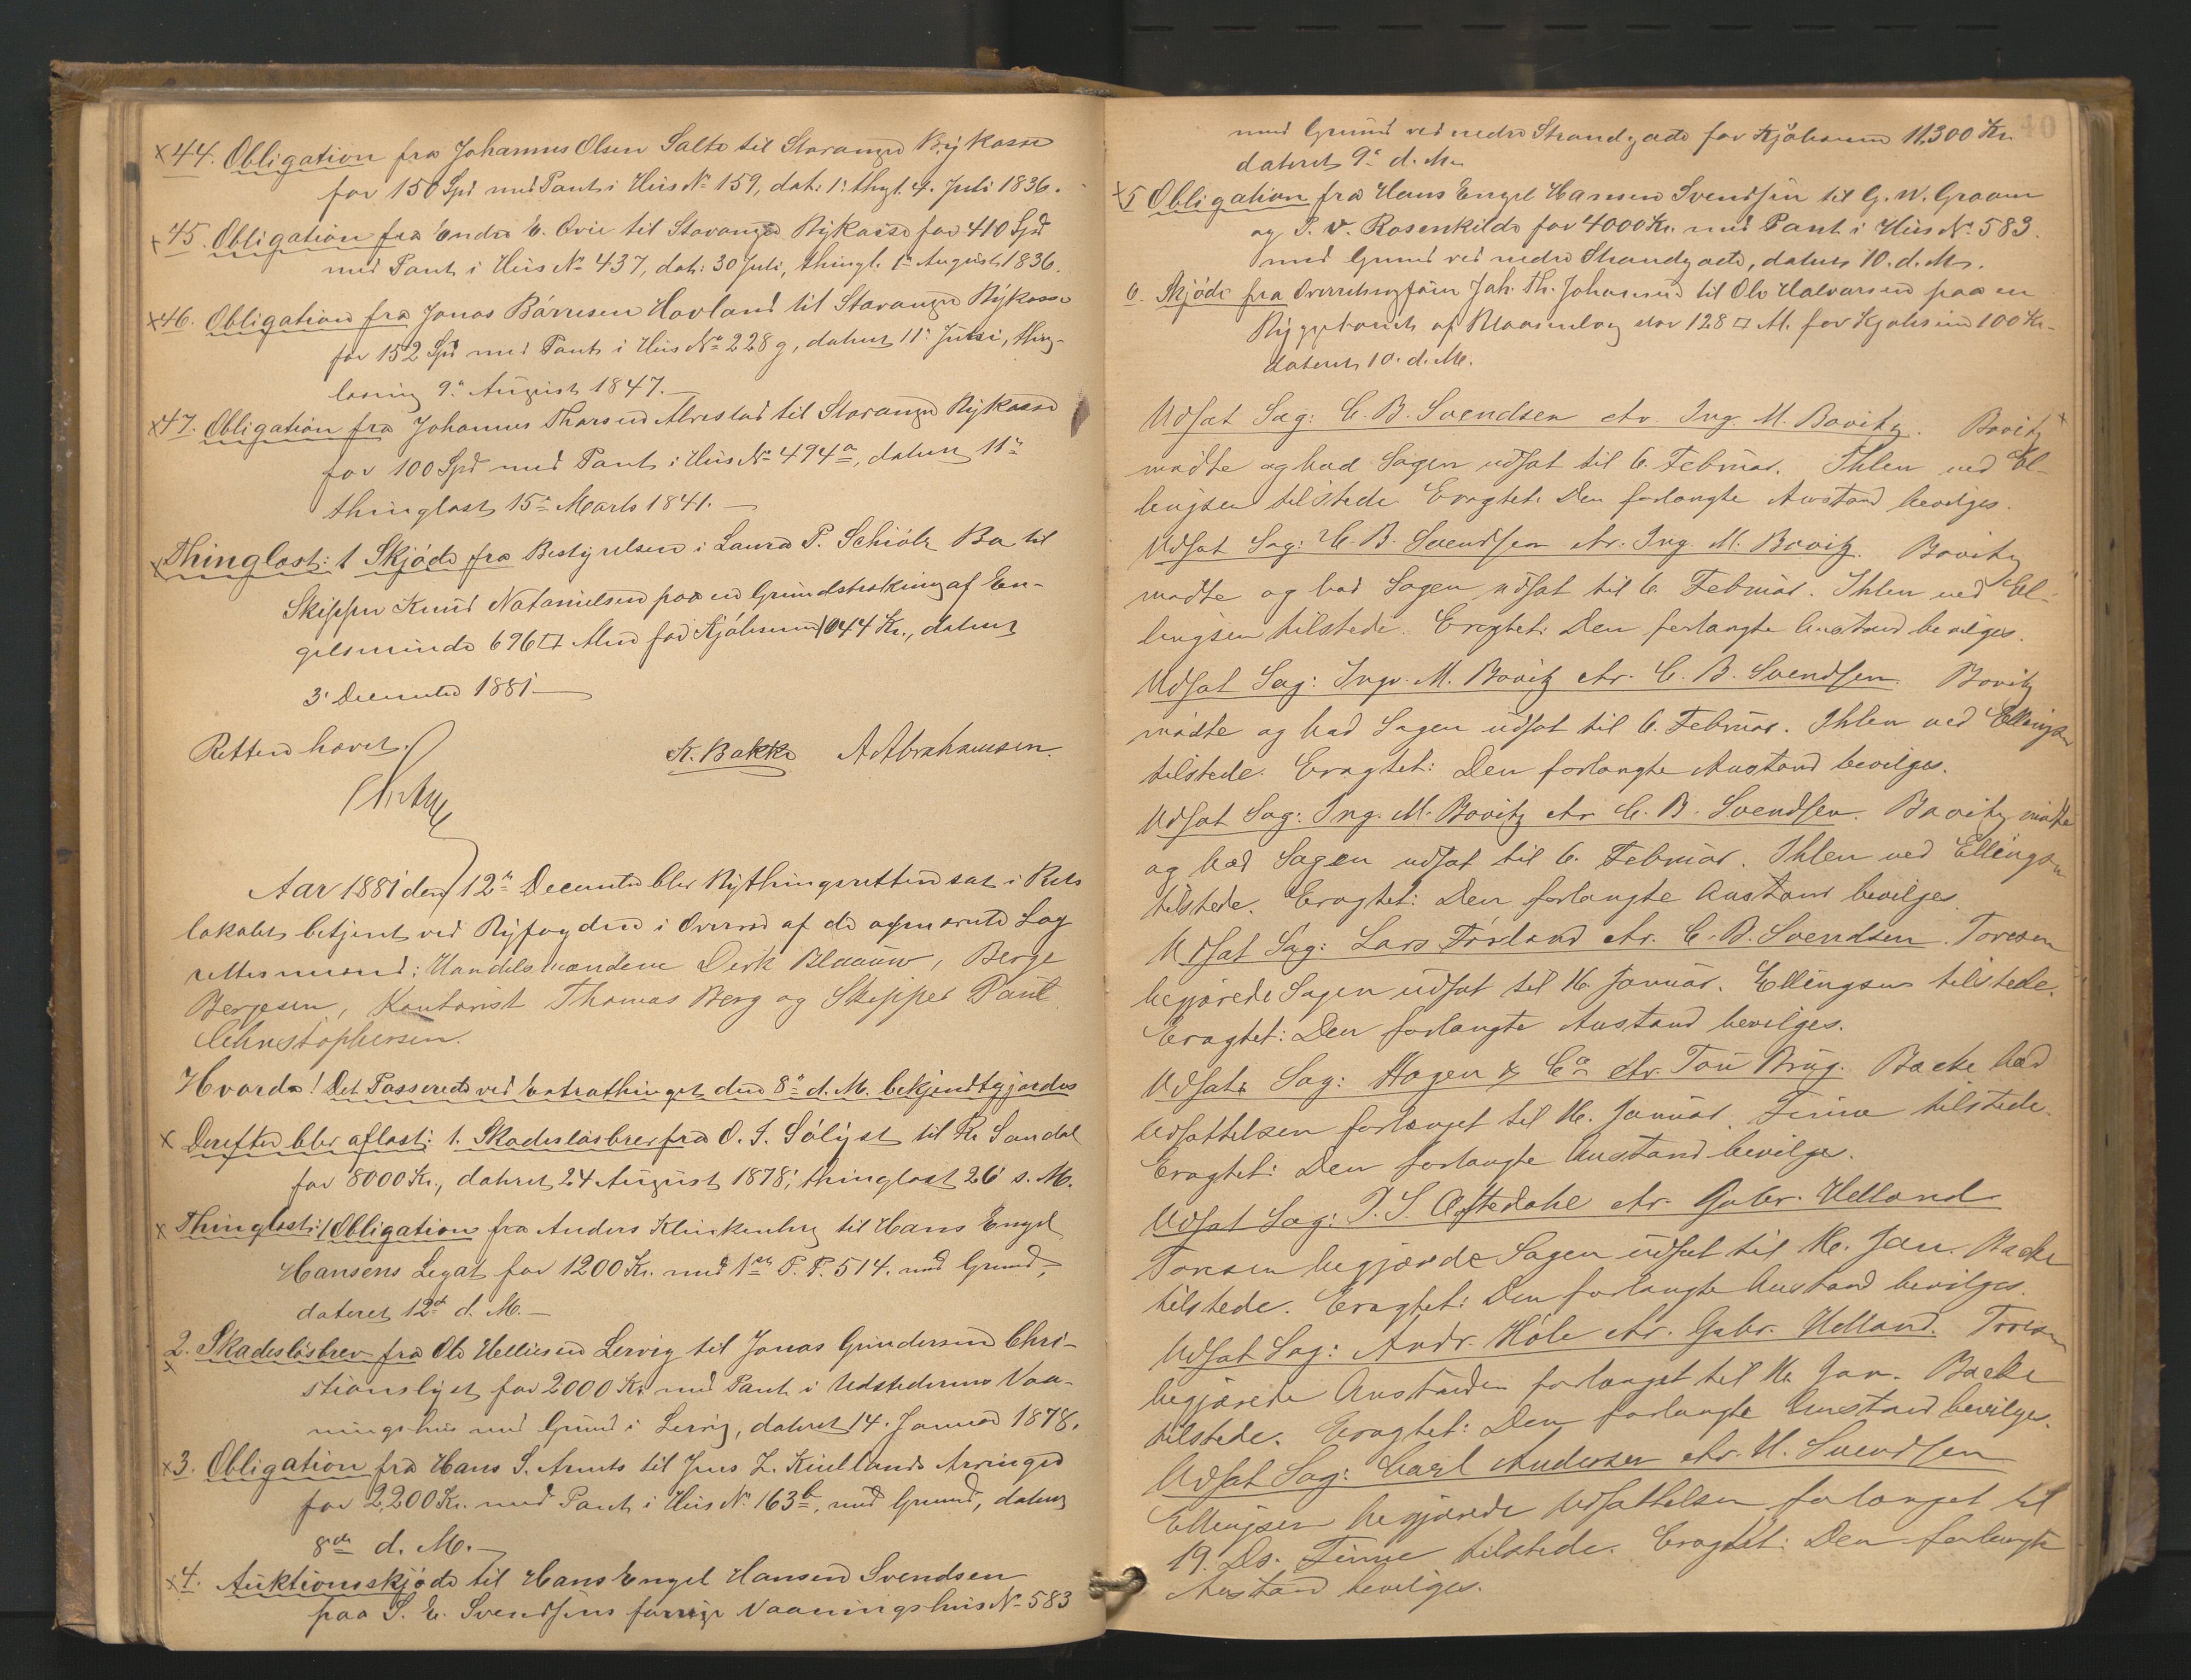 x 44. Obligation fra Johannes Olsen Salte til Stavanger Bykasse
for 150 Spd med Pant i Huus No 159, dat: 1. thgl. 4. Juli 1836.
x 45. Obligation fra Endre E. Ovie til Stavanger Bykasse for 410 Spd
med Pant i Huus No 437, dat: 30 Juli, thingl. 1ste August 1836.
x 46. Obligation fra Jonas Børresen Hovland til Stavanger Bykasse
for 152 Spd med Pant i Huus No 228 g, dateret 11. Juni, thing-
læsning 9. August 1847. —
x 47. Obligation fra Johannes Thorsen Alvestad til Stavanger Bykasse
for 100 Spd med Pant i Huus No 494 a, dateret 11te
thinglæst 15de Marts 1841. —
x Thinglæst: 1 Skjøde fra Bestyrelsen i Laura P. Schiøtz Bo til
Skipper Knud Natanielsen paa en Grundstrækning af En-
gelsminde 696 □ Alen for Kjøbesum 1044 Kr., dateret
3. December 1881 —
Retten hævet.
K. Bakke A Abrahamsen.
Aar 1881 den 12te December blev Bythingsretten sat i Rets
lokalet betjent ved Byfogden i Overvær af de opnævnte Lag
rettesmænd: Handelsmændene Dirk Blaauw, Berge
Bergesen, Kontorist Thomas Berg og Skipper Paul
Christophersen.
Hvorda! Det Passerede ved Extrathinget den 8de d. M. bekjendtgjordes
x Derefter blev aflæst: 1. Skadesløsbrev fra O. S. Sølyst til Kr Sandal
for 8000 Kr., dateret 24 August 1878, thinglæst 26 s. M.
x Thinglæst: 1 Obligation fra Anders Klinkenberg til Hans Engel
Hansens Legat for 1200 Kr. med 1ste P. P. 514. med Grund,
dateret 12te d. M. —
x 2. Skadesløsbrev fra Ole Helliesen Lervig til Jonas Gundersen Chri-
stianslyst for 2000 Kr med Pant i Udstederens Vaa-
ningshus med Grund i Lervig, dateret 14. Januar 1878.
x 3. Obligation fra Hans S. Arents til Jens Z. Kiellands Arvinger
for 2,200 Kr. med Pant i Huus No 163 b, med Grund, dateret
8de d. M. —
x 4. Auktionsskjøde til Hans Engel Hansen Svendsen
paa S. E. Svendsens forrige Vaaningshuis No 583
40
med Grund ved nedre Strandgade for Kjøbesum 11,300 Kr.
dateret 9de d. M.
x 5 Obligation fra Hans Engel Hansen Svendsen til G. W. Graam
og P. v. Rosenkilde for 4000 Kr. med Pant i Huus No 583.
med Grund ved nedre Strandgade, dateret 10. d. M.
6. Skjøde fra Joh. Th. Johansen til Ole Halvorsen paa en
Byggetomt af Blaasenborg stor 128 □ M. for Kjøbesum 100 Kr.
dateret 10. d. M.
Udsat Sag: C. B. Svendsen ctr. Ing. M. Bovitz. Bovitz x
mødte og bad Sagen udsat til 6. Februar. Ihlen ved El-
lingsen tilstede. Eragtet: Den forlangte Anstand bevilges.
Udsat Sag: C. B. Svendsen ctr. Ing. M. Bovitz. Bovitz
mødte og bad Sagen udsat til 6. Februar. Ihlen ved El-
lingsen tilstede. Eragtet: Den forlangte Anstand bevilges.
Udsat Sag: Ingv. M. Bovitz ctr. C. B. Svendsen. Bovitz
mødte og bad Sagen udsat til 6. Februar. Ihlen ved Ellingsen
tilstede. Eragtet: Den forlangte Anstand bevilges.
Udsat Sag: Ing. M. Bovitz ctr C. B. Svendsen. Bovitz mødte
og bad Sagen udsat til 6. Februar. Ihlen ved Ellingsen
tilstede. Eragtet: Den forlangte Anstand bevilges
Udsat Sag: Lars Førland ctr. C. B. Svendsen. Toresen
begjærede Sagen udsat til 16. Januar. Ellingsen tilstede.
Eragtet: Den forlangte Anstand bevilges.
Udsat Sag: Hagen & Co ctr. Tou Brug. Backe bad
Udsættelsen forlænget til 16. Januar. Finne tilstede.
Eragtet: Den forlangte Anstand bevilges.
Udsat Sag: T. S. Opstedahl ctr. Gabr. Helland
Toresen begjærede Sagen udsat til 16. Jan. Backe
tilstede. Eragtet: Den forlangte Anstand bevilges.
Udsat Sag: Andr. Høle ctr. Gabr. Helland. Toresen
begjærede Anstanden forlænget til 16. Jan. Backe
tilstede. Eragtet: Den forlangte Anstand bevilges.
Udsat Sag: Carl Andersen ctr. H. Svendsen
Ellingsen begjærede Udsættelsen forlænget til
19. Ds. Finne tilstede. Eragtet: Den forlangte
Anstand bevilges.